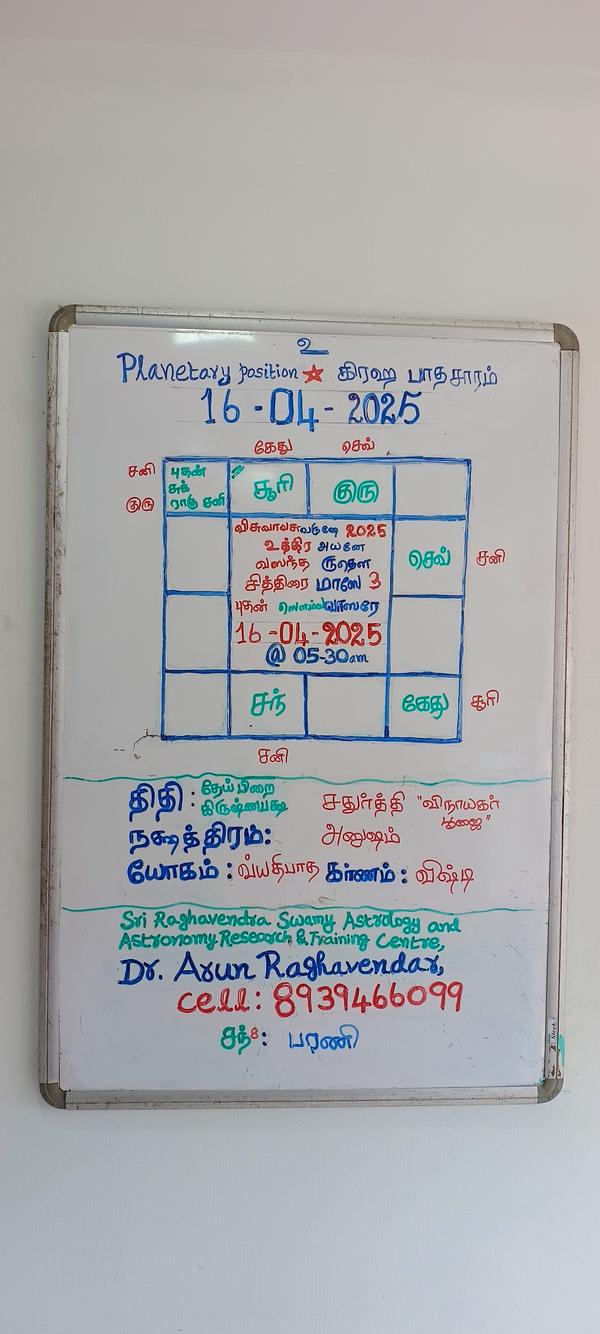 உ
Planetary position கிரஹ பாதசாரம்
16-04-2025
கேது செவ்
சனி
குரு
புதன்
சுக்
ராகு சனி
சூரி
குரு
விசுவாவசுவருஷே 2025
உத்திர அயனே
வஸந்த ருதௌ
சித்திரை மாஸே 3
புதன் ஸௌம்யவாஸரே
16-04-2025
@ 05-30am
செவ்
சனி
சந்
கேது
சூரி
சனி
திதி: தேய்பிறை கிருஷ்ணபக்ஷ சதுர்த்தி "விநாயகர் பூஜை"
நக்ஷத்திரம்: அனுஷம்
யோகம்: வ்யதிபாத கர்ணம்: விஷ்டி
Sri Raghavendra Swamy Astrology and
Astronomy Research & Training Centre,
Dr. Arun Raghavendar,
cell: 8939466099
சந் 8: பரணி